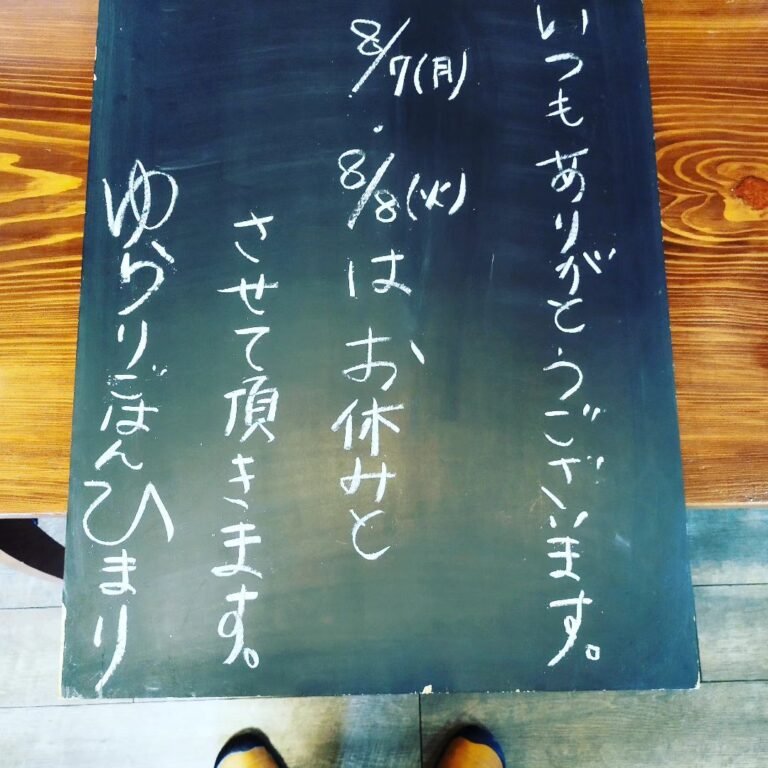 いつもありがとうございます。
8/7(月)・8/8(火)はお休みと
させて頂きます。
ゆらりごはんひまり